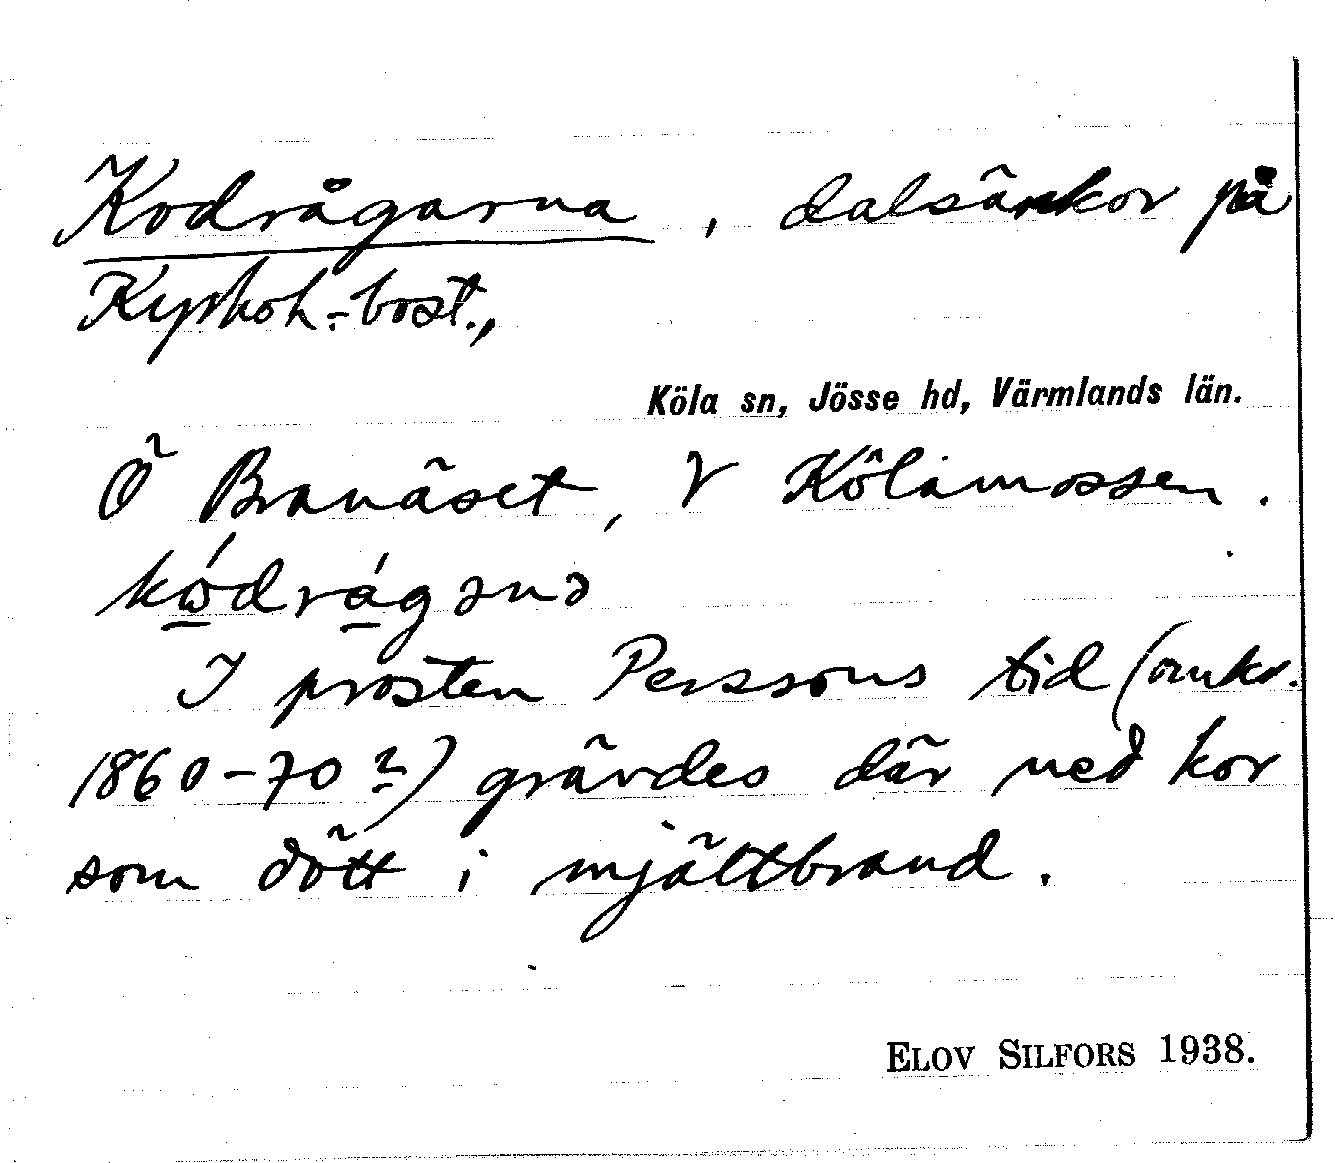 Kodrågarna, dalsänkor på
Kyrkoh.-bost.,
Köla sn, Jösse hd, Värmlands län.
Ö Branäset, V Kölamossen.
kódrágənə
I prosten Perssons tid (omkr.
1860-70?) grävdes där ned kor
som dött i mjältbrand.
ELOV SILFORS 1938.